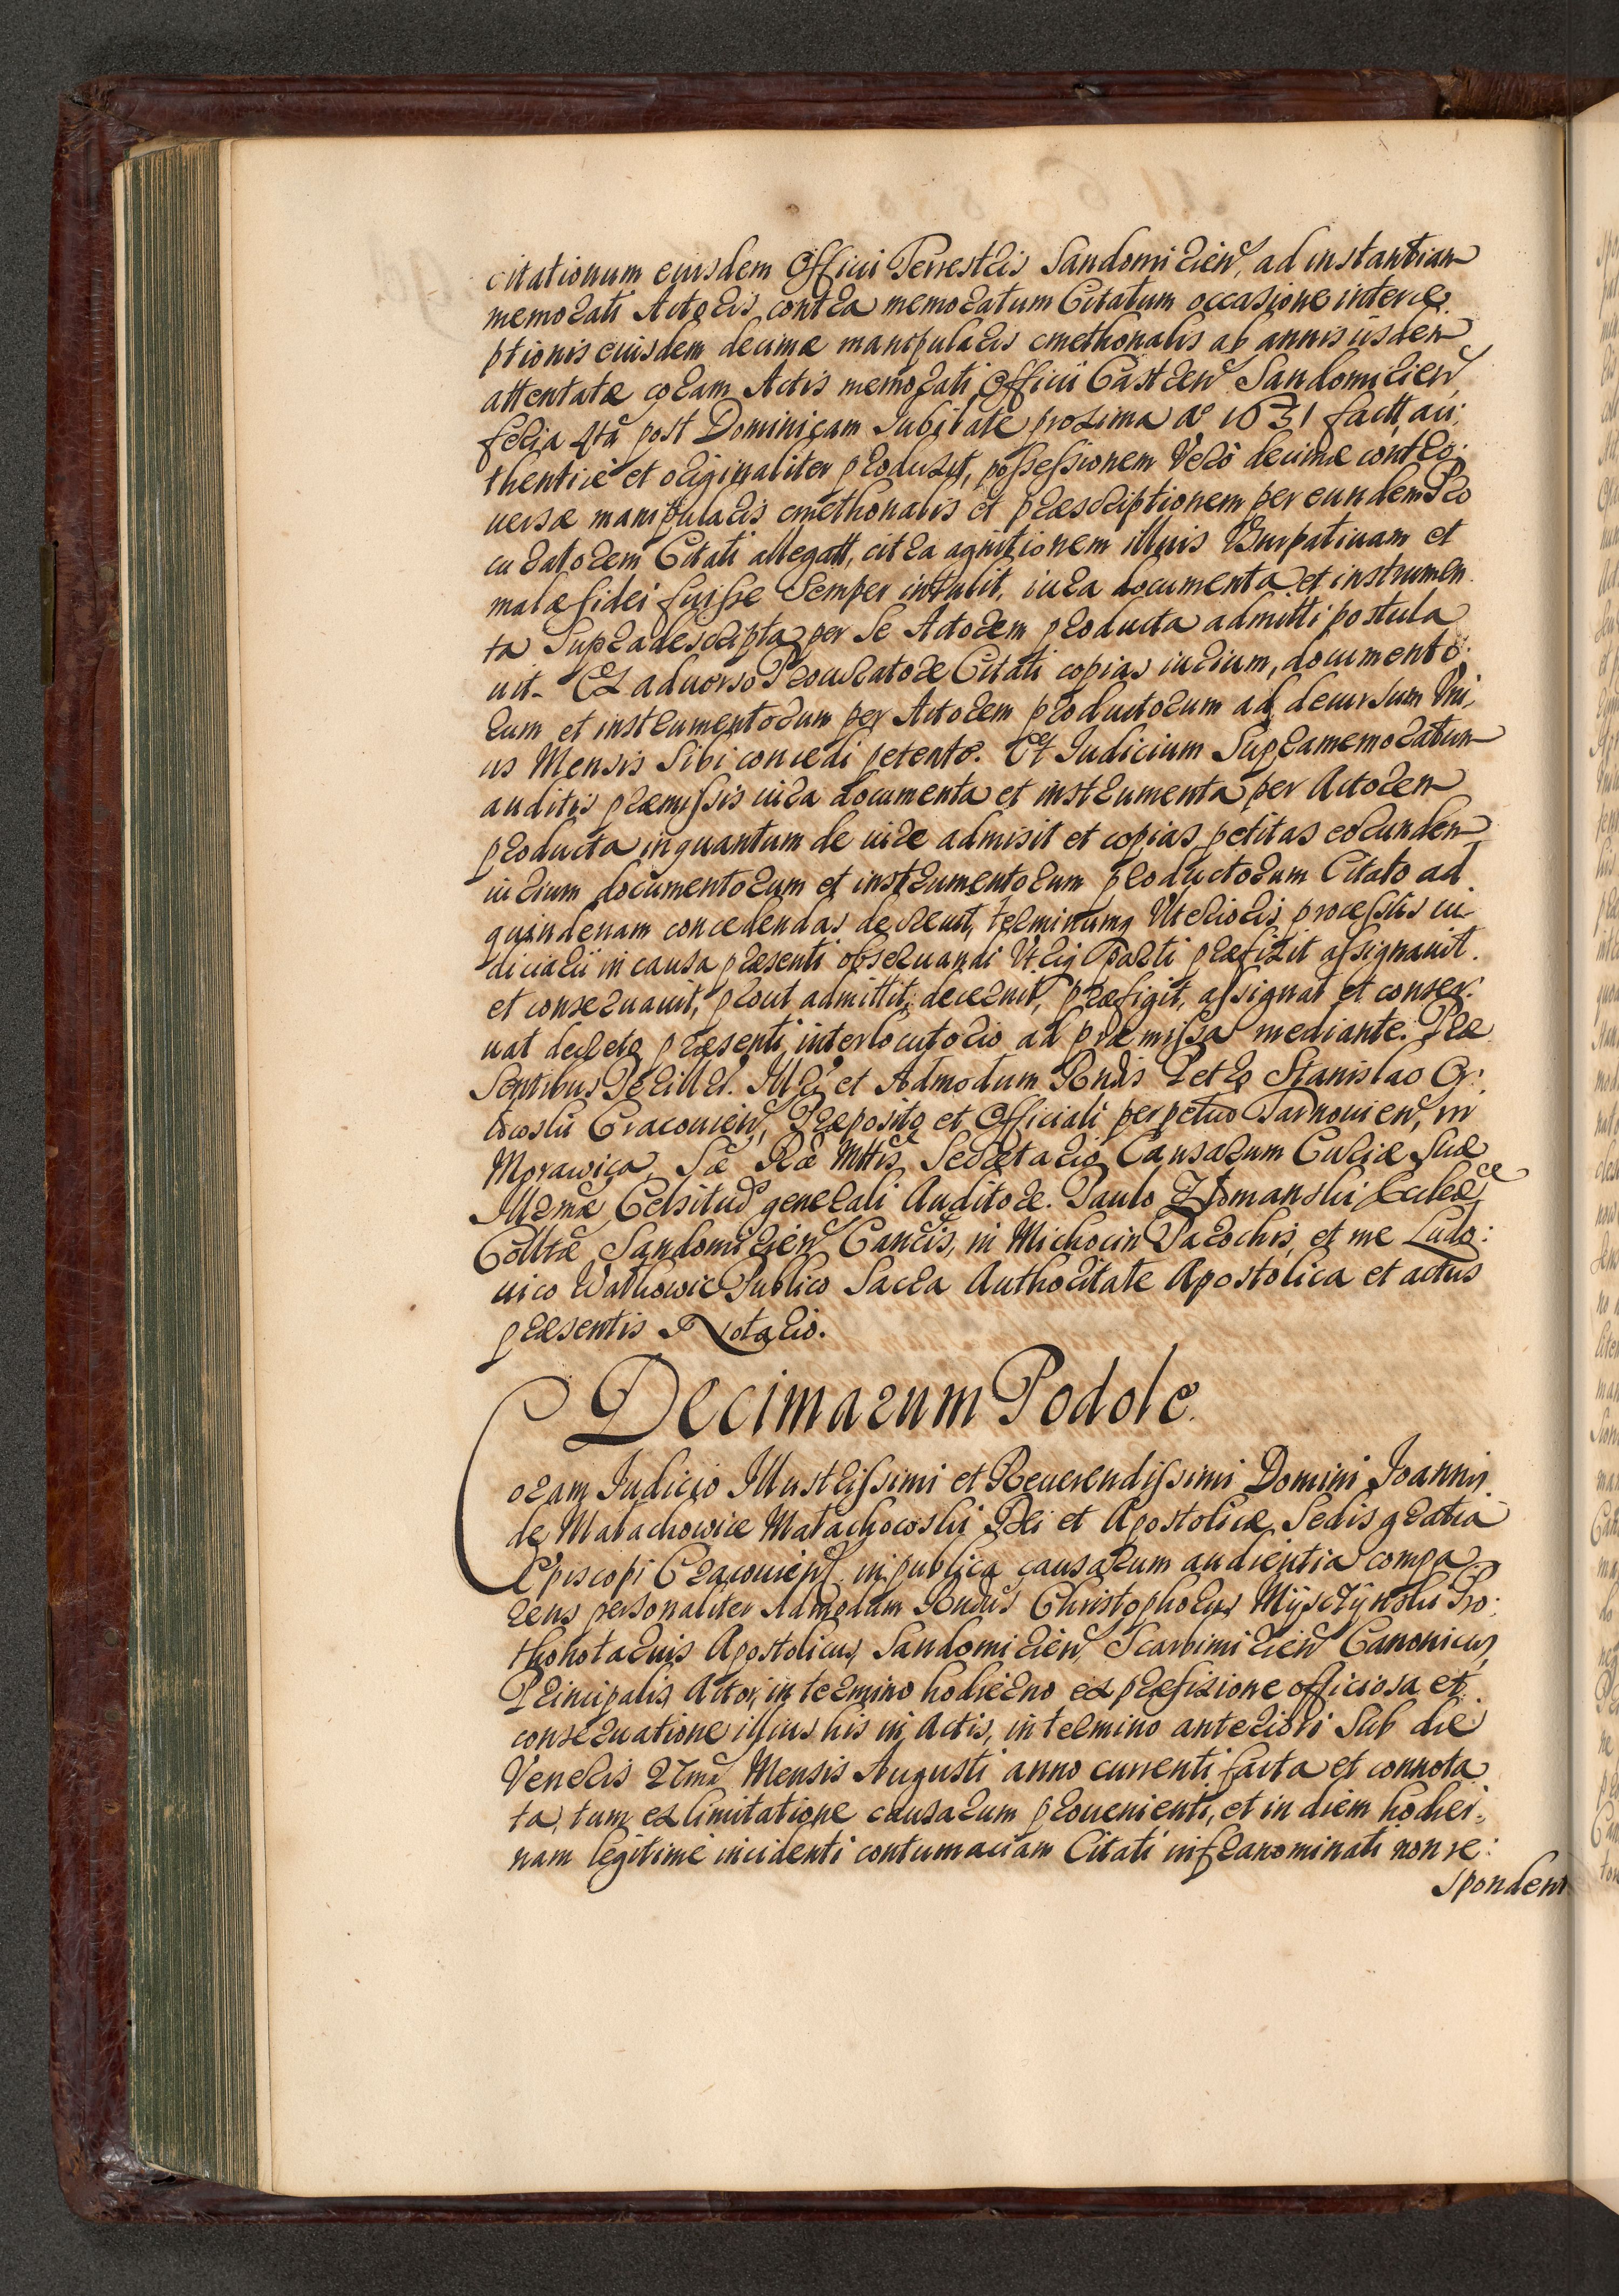 citationum eiusdem Officii Terrestris Sandomirień, ad instantiam
memorati Actoris contra memoratum Citatum occasione interce
ptionis eiusdem decimæ manipularis cmethonalis ab annis iisdem
attentatæ coram Actis memorati Officii Castreń Sandomirień
feria 4tâ post Dominicam Jubilate proxima aº 1631 factt, au:
thenticè et originaliter produxit, possessionem verò decimæ contro:
uersæ manipularis cmethonalis et præscriptionem per eundem Pro
curatorem Citati allegatt, citra agnitionem illius Vsurpatiuam et
malæ fidei fuisse semper intulit, iura documenta et instrumen
ta Supradescripta per se Actorem producta admitti postula
uit. Ex aduerso Procuratore Citati copias iurium, documento:
rum et instrumentorum per Actorem productorum ad decursum Vni,
us Mensis sibi concedi petente. Et Iudicium Supramemoratum
auditis præmissis iura documenta et instrumenta per Actorem
producta inquantum de iure admisit et copias petitas eorundem
iurium documentorum et instrumentorum productorum Citato ad
quindenam concedendas decreuit, terminumq Vlterioris processus iu
diciarii in causa præsenti obseruandi Vtriq parti præfixit assignauit.
et conseruauit, prout admittit, decernit, præfigit, assignat et conser:
uat decreto præsenti interlocutorio ad præmissa mediante. Præ
sentibus Perillrí. Illrí et Admodum Rndis Petro Stanislao Or:
łowski Cracouień, Præposito et Officiali perpetuo Tarnouień, in
Morawica Sæ Ræ Mttis Secretario Causarum Curiæ Suæ
Illrmæ Celsitud generali Auditore. Paulo Ziomanski Eccleæ
Colltæ Sandomirień Cancis, in Michocin Parochis, et me Ludo:
uico Wathowic Publico Sacra Authoritate Apostolica et actus
præsentis Notario.
Decimarum Podole.
Coram Iudicio Illustrissimi et Reuerendissimi Domini Joannis
de Małachowice Małachowski Dei et Apostolicæ Sedis gratia
Episcopi Cracouień. in publica causarum audientia compa
rens personaliter Admodum Rndus Christophorus Myszÿnski Pro:
thonotarius Apostolicus, Sandomirień, Scarbimirień Canonicus,
Principalis Actor, in termino hodierno ex præfixione officiosa et
conseruatione illius his in Actis, in termino anteriori Sub die
Veneris 27ma Mensis Augusti anno currenti facta et connota
ta, tum ex limitatione causarum prouenienti, et in diem hodier:
nam legitimè incidenti contumaciam Citati infranominati non re:
spondent